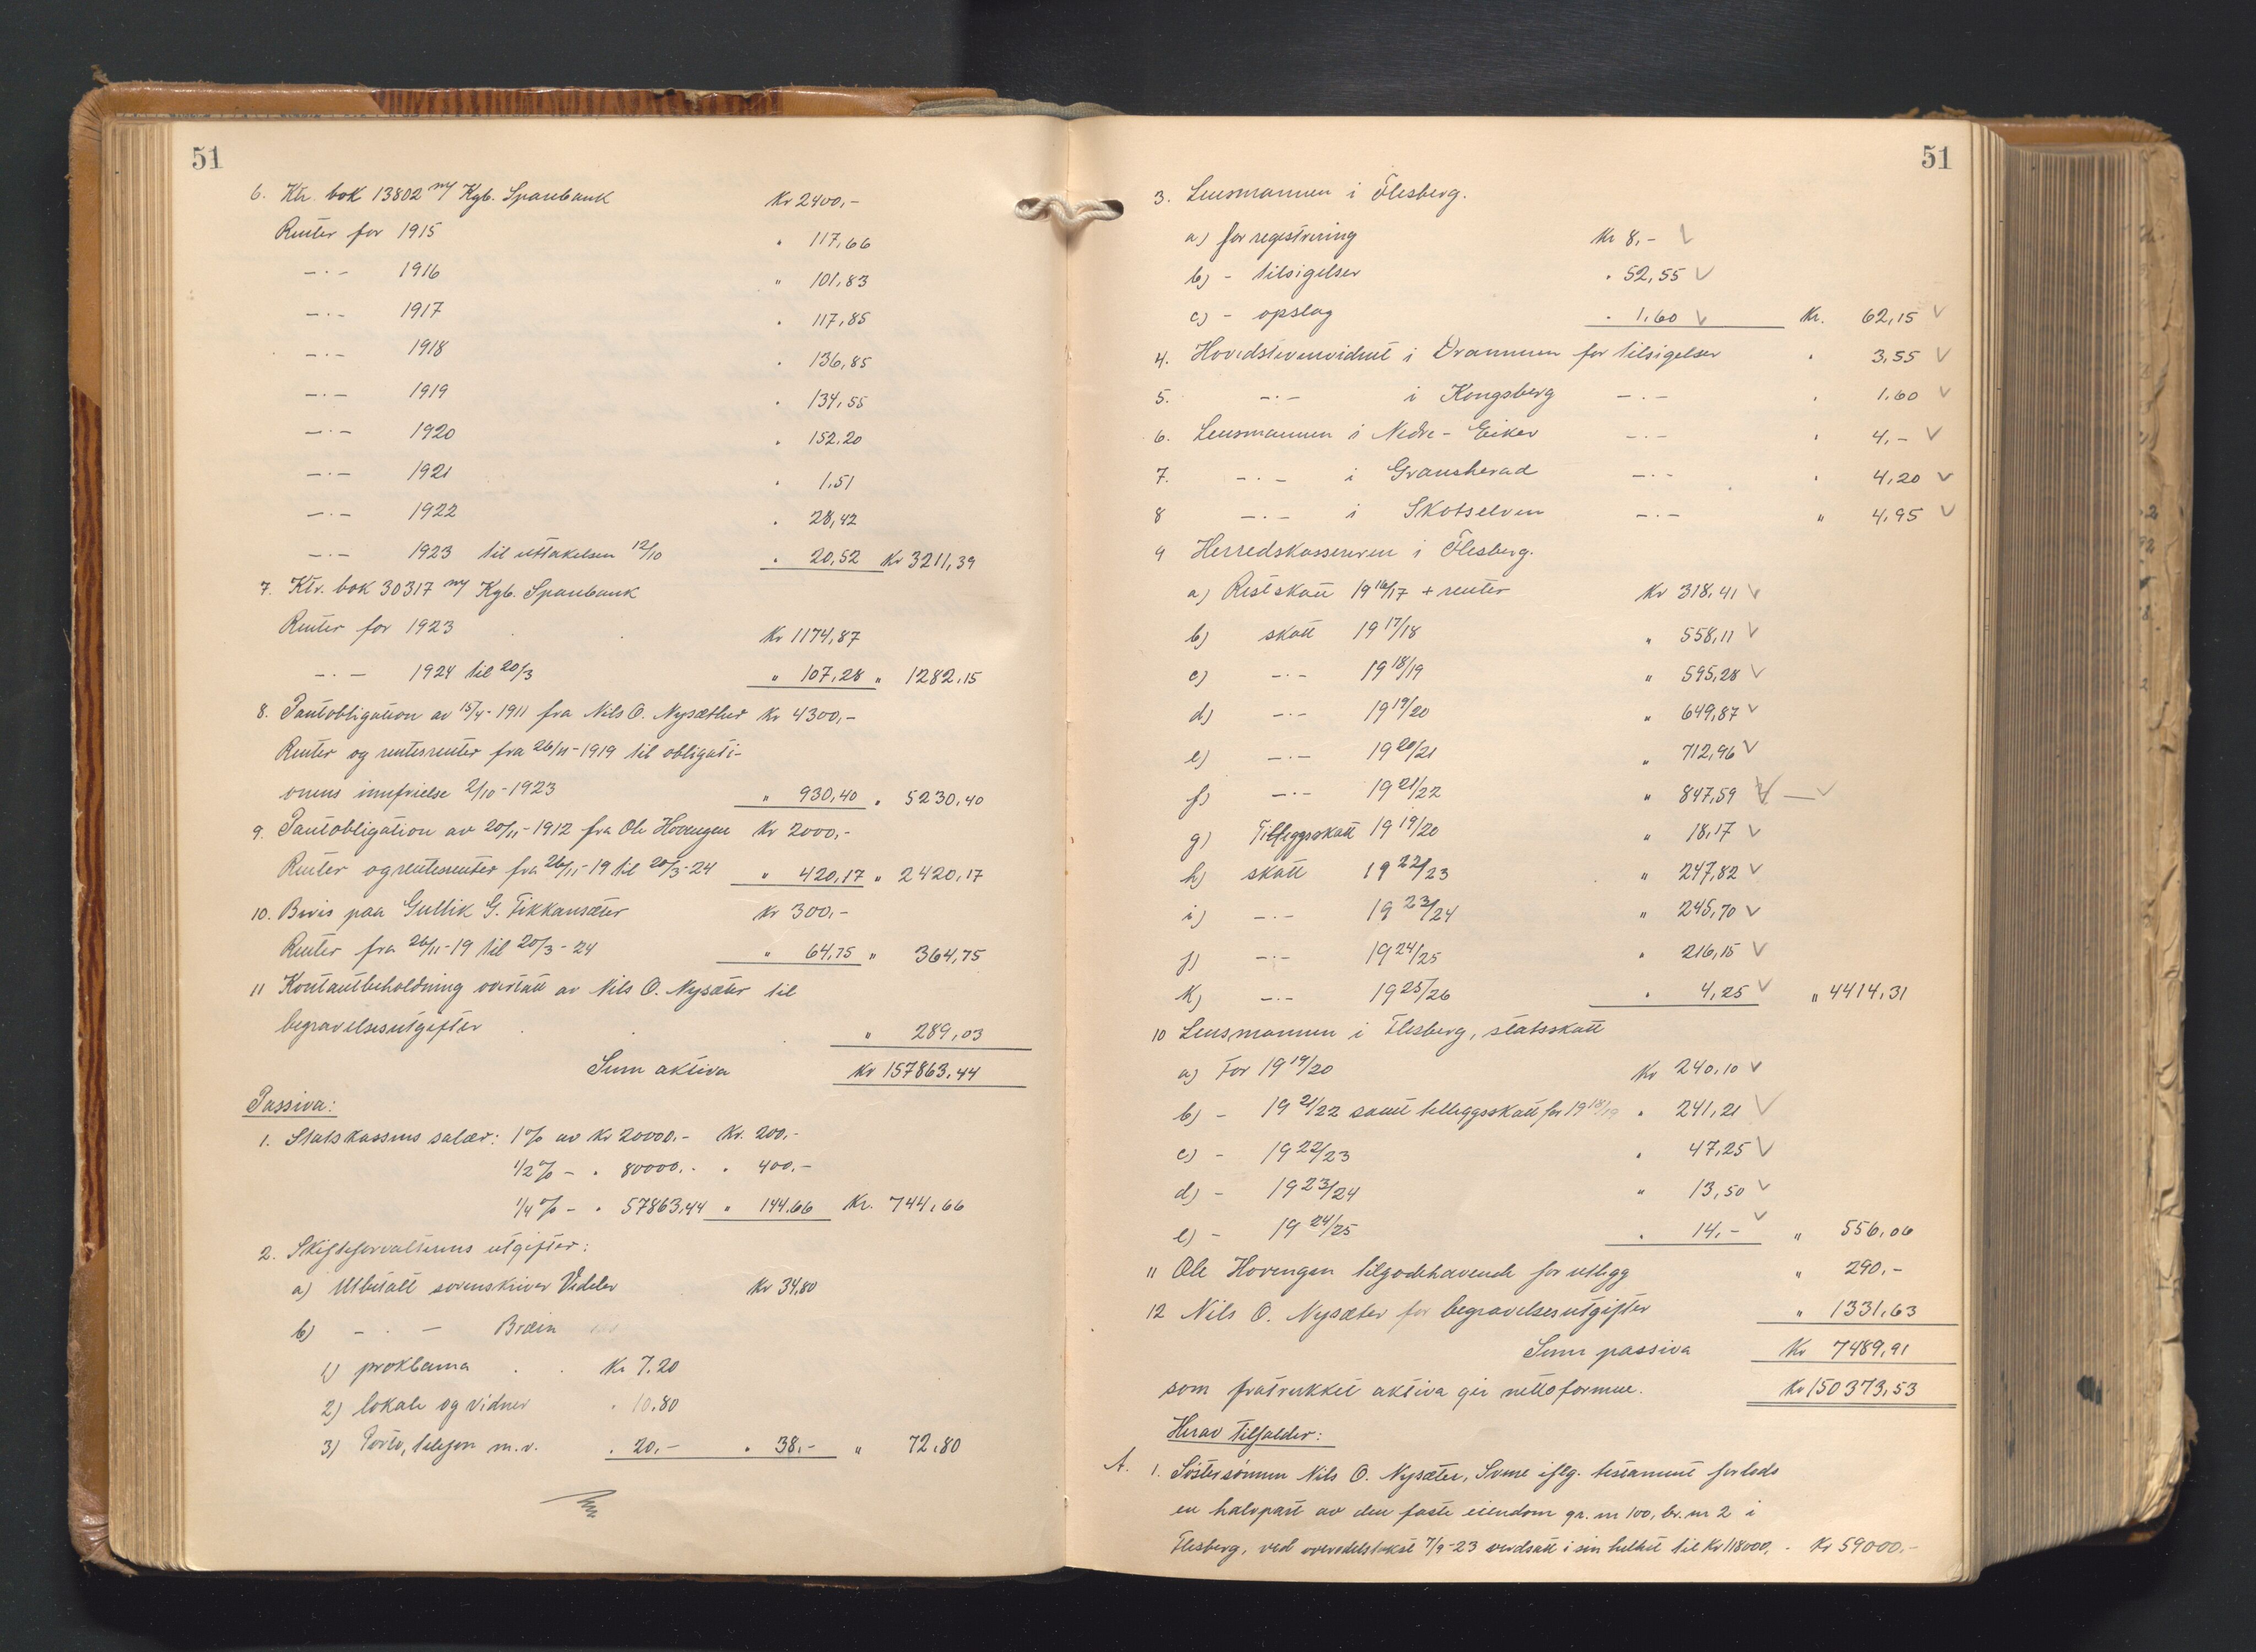 51
6. Ktr. bok 13802 m/ Kgb. Sparebank Kr 2400,-
Renter for 1915 " 117,66
-.- 1916 " 101,83
-.- 1917 " 117,85
-.- 1918 " 136,85
-.- 1919 " 134,55
-.- 1920 " 152.20
-.- 1921 " 1,51
-.- 1922 " 28,42
-.- 1923 til uttakelsen 12/10 " 20,52 Kr 3211,39
7. Ktr. bok 30317 m/ Kgb. Sparebank
Renter for 1923 Kr 1174,87
-.- 1924 til 20/3 " 107,28 " 1282,15
8. Pantobligation av 15/4-1911 fra Nils O. Nysæther Kr 4300,-
Renter og rentesrenter fra 26/11-1919 til obligati-
onens innfrielse 2/10-1923 " 930,40 " 5230,40
9. Pantobligation av 20/11-1912 fra Ole Hovengen Kr 2000,-
Renter og rentesrenter fra 26/11-19 til 20/3-24 " 420,17 " 2420,17
10. Bevis paa Gullik G. Fikkansæter Kr 300,-
Renter fra 26/11-19 til 20/3-24 " 64,75 " 364,75
11 Kontantbeholdning overtatt av Nils O. Nysæter til
begravelsesutgifter " 289,03
Sum aktiva Kr 157863,44
Passiva:
1. Statskassens salær: 1% av Kr 20000.- Kr. 200,-
1/2% - " 80000.- " 400.-
1/4% - " 57863,44 " 144,66 Kr. 744,66
2. Skifteforvalterens utgifter:
a) Utbetalt sorenskriver Videler Kr 34,80
b) -.- Bræin
1) proklama Kr 7.20
2) lokale og vidner " 10.80
3) Porto, telefon m.v. " 20,- " 38,- " 72,80
51
3. Lensmannen i Flesberg.
a) for registrering Kr 8,-
b) - tilsigelser " 52,55
c) - opslag " 1.60 Kr. 62,15
4. Hovedstevnevidnet i Drammen for tilsigelser " 3,55
5. -.- i Kongsberg -.- " 1.60
6. Lensmannen i Nedre-Eiker -.- " 4,-
7. -.- i Gransherad -.- " 4,20
8 -.- i Skotselven -.- " 4,95
9 Herredskassereren i Flesberg.
a) Restskatt 1916/17 + renter Kr 318,41
b) skatt 1917/18 " 558,11
c) -.- 1918/19 " 595,28
d) -.- 1919/20 " 649,87
e) -.- 1920/21 " 712,96
f) -.- 1921/22 " 847,59
g) Tilleggsskatt 1919/20 " 18,17
h) skatt 1922/23 " 247,82
i) -.- 1923/24 " 245,70
j) -.- 1924/25 " 216,15
k) -.- 1925/26 " 4,25 " 4414,31
10 Lensmannen i Flesberg, statsskatt
a) For 1919/20 Kr 240,10
b) - 1921/22 samt tilleggsskatt for 1918/19 " 241,21
c) - 1922/23 " 47,25
d) - 1923/24 " 13,50
e) - 1924/25 " 14,- " 556,06
11 Ole Hovengen tilgodehavende for utlegg " 290,-
12 Nils O. Nysæter for begravelsesutgifter " 1331,63
Sum passiva Kr 7489,91
som fratrukket aktiva gir nettoformue. Kr 150373,53
Herav tilfalder:
A. 1. Søstersønnen Nils O. Nysæter, Svene iflg. testament forlods
en halvpart av den faste eiendom gr. nr 100, br. nr 2 i
Flesberg, ved overodelstakst 7/9-23 verdsatt i sin helhet til Kr 118000,- Kr 59000,-